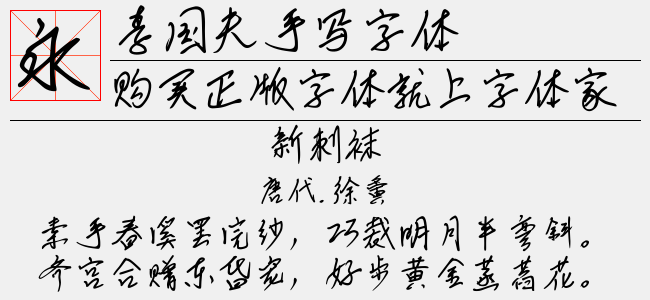 永
李国夫手写字体
购买正版字体就上字体家
新刺袜
唐代.徐夤
素手春溪罢浣纱，巧裁明月半弯斜。
齐宫合赠东昏宠，好步黄金菡萏花。